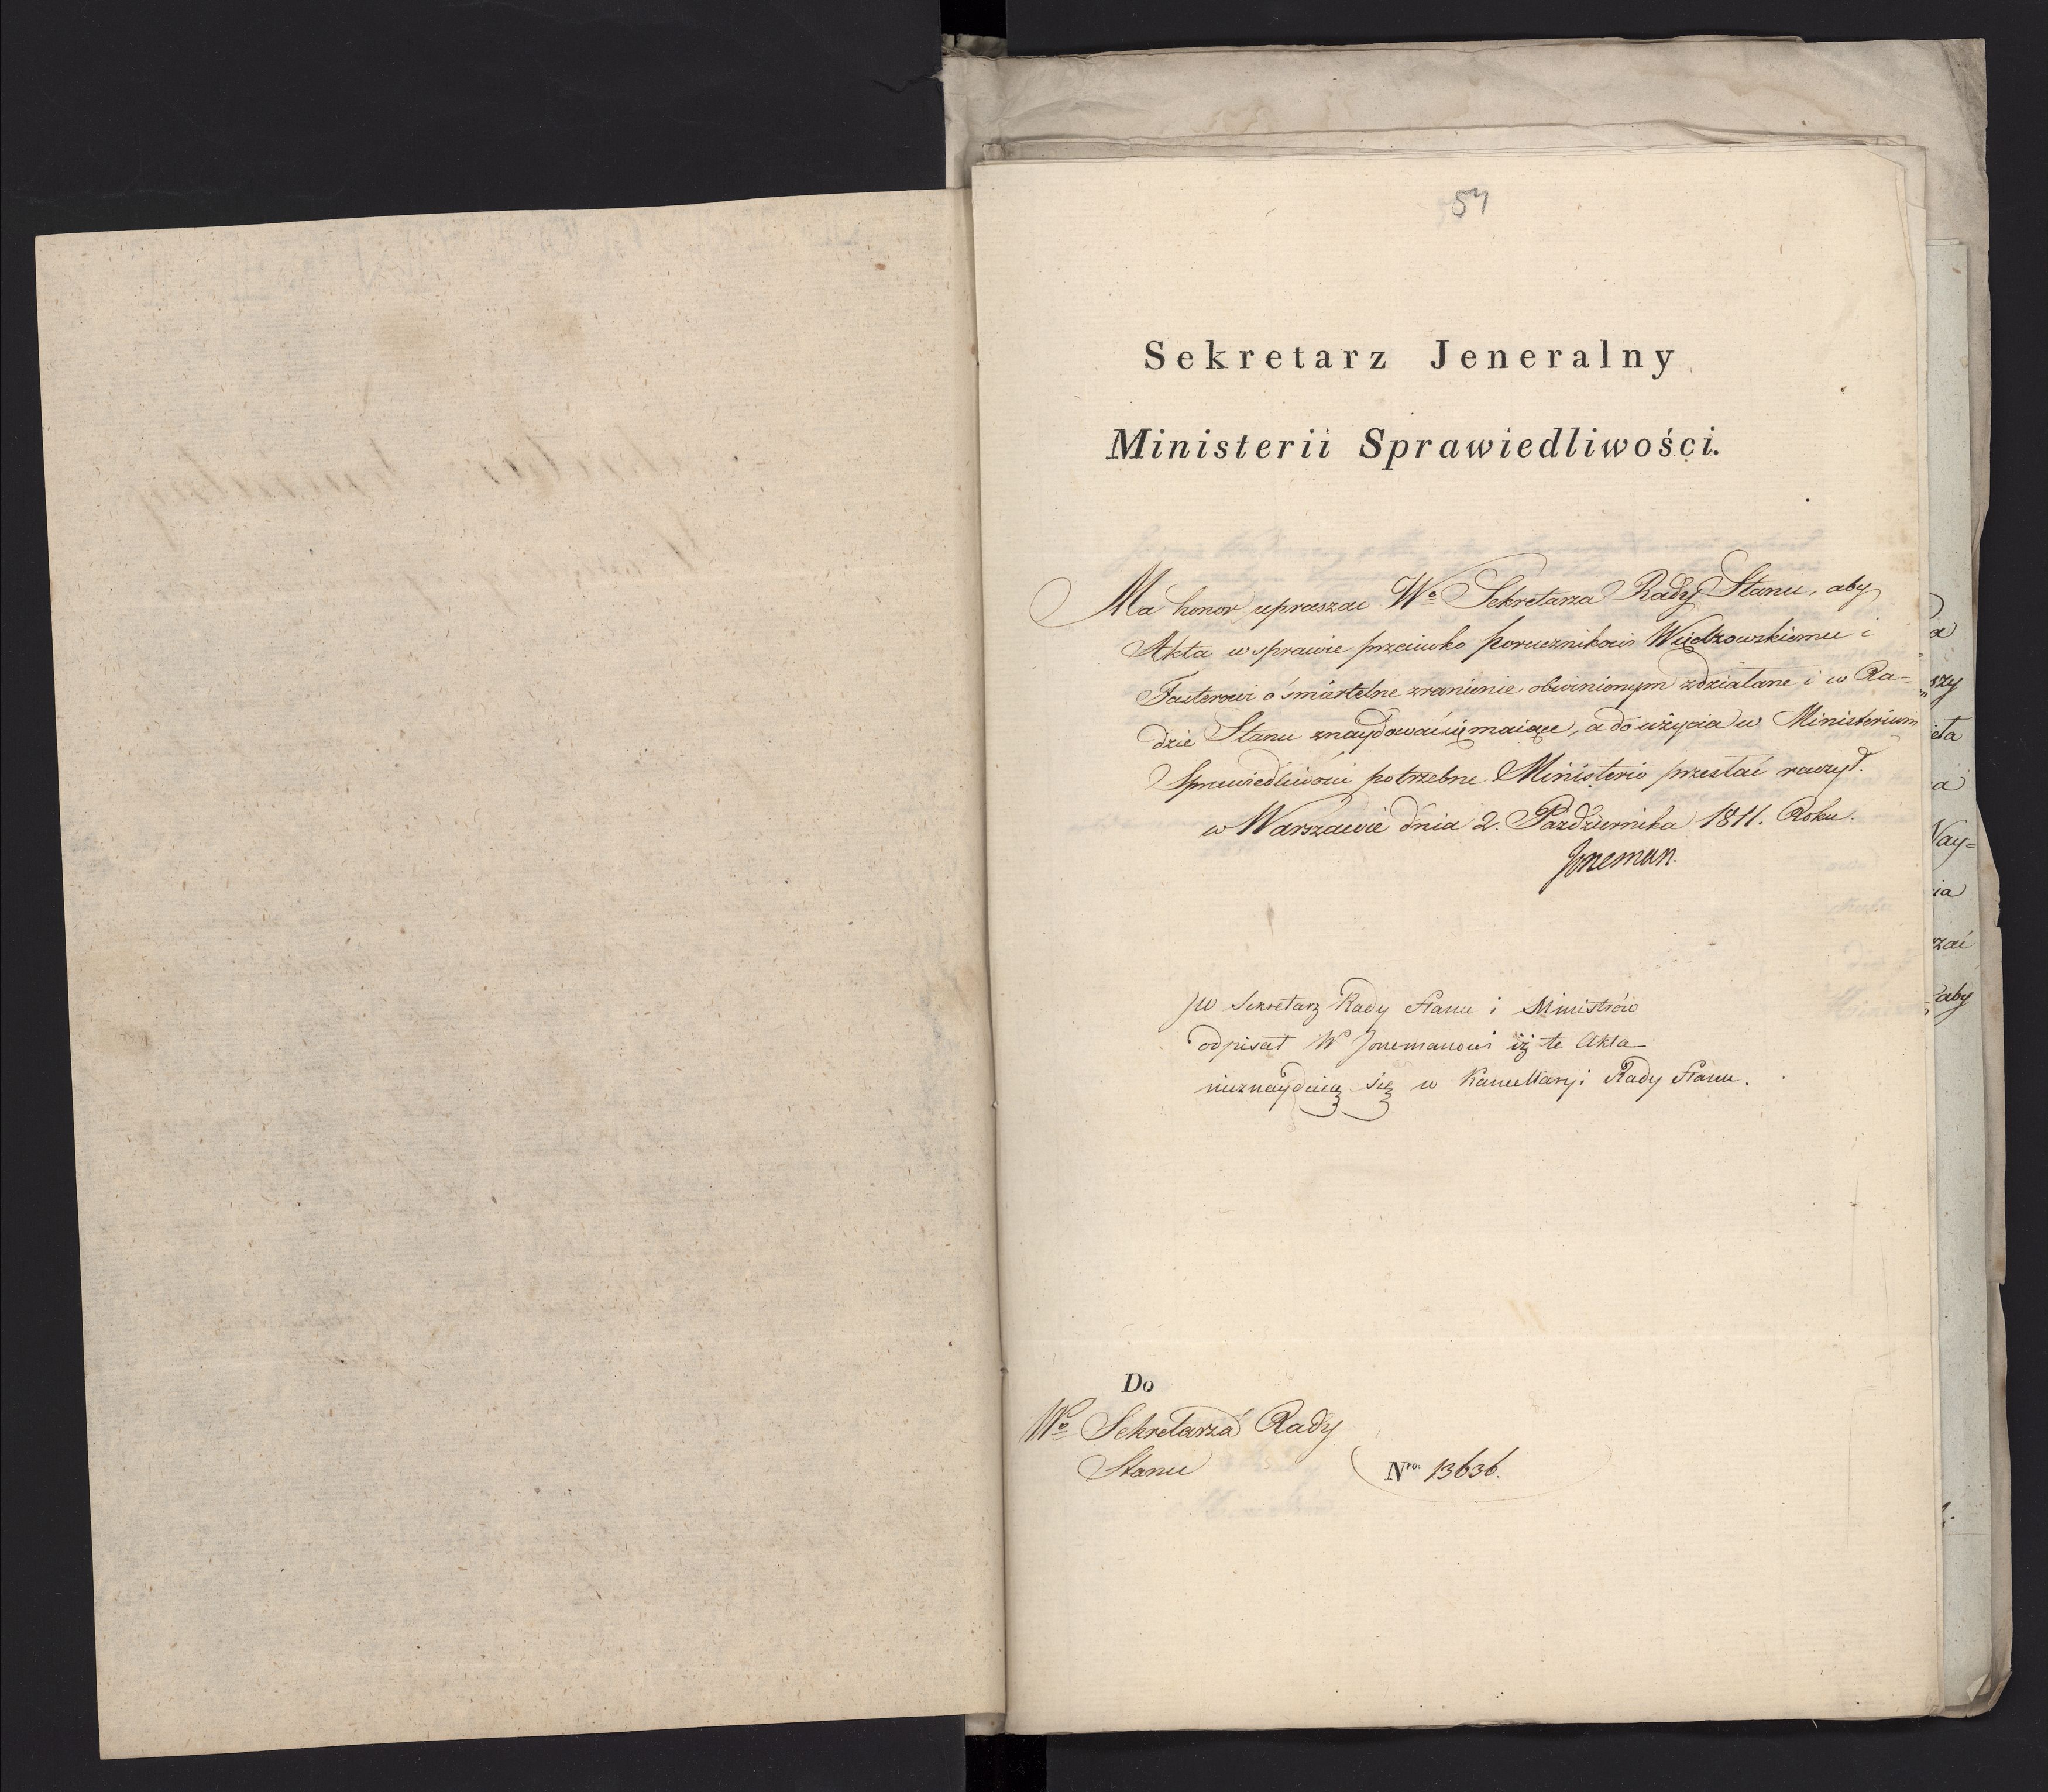 57
Sekretarz Jeneralny
Ministerii Sprawiedliwości.
Ma honor upraszac Wo Sekretarza Rady Stanu, aby
Akta w sprawie przeciwko porucznikowi Więdzowskiemu i
Fasterowi o śmiertelne zranienie obwinionym zdziałane i w Ra-
dzie Stanu znaydować się maiące, a do użycia w Ministerium
Sprawiedliwości potrzebne Ministerio przesłać raczył.
w Warszawie dnia 2. Października 1811. Roku.
Joneman.
JW Sekretarz Rady Stanu i Ministrów
odpisał W Jonemanowi iż te Akta
nieznayduią się w Kancellaryi Rady Stanu.
Do
Wo Sekretarza Rady
Stanu
Nro. 13636.